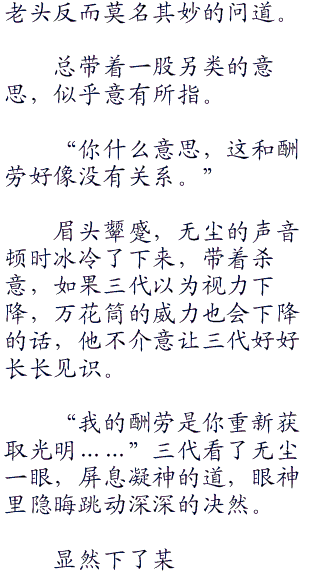 老头反而莫名其妙的问道。
总带着一股另类的意
思，似乎意有所指。
“你什么意思，这和酬
劳好像没有关系。”
眉头颦蹙，无尘的声音
顿时冰冷了下来，带着杀
意，如果三代以为视力下
降，万花筒的威力也会下降
的话，他不介意让三代好好
长长见识。
“我的酬劳是你重新获
取光明……”三代看了无尘
一眼，屏息凝神的道，眼神
里隐晦跳动深深的决然。
显然下了某